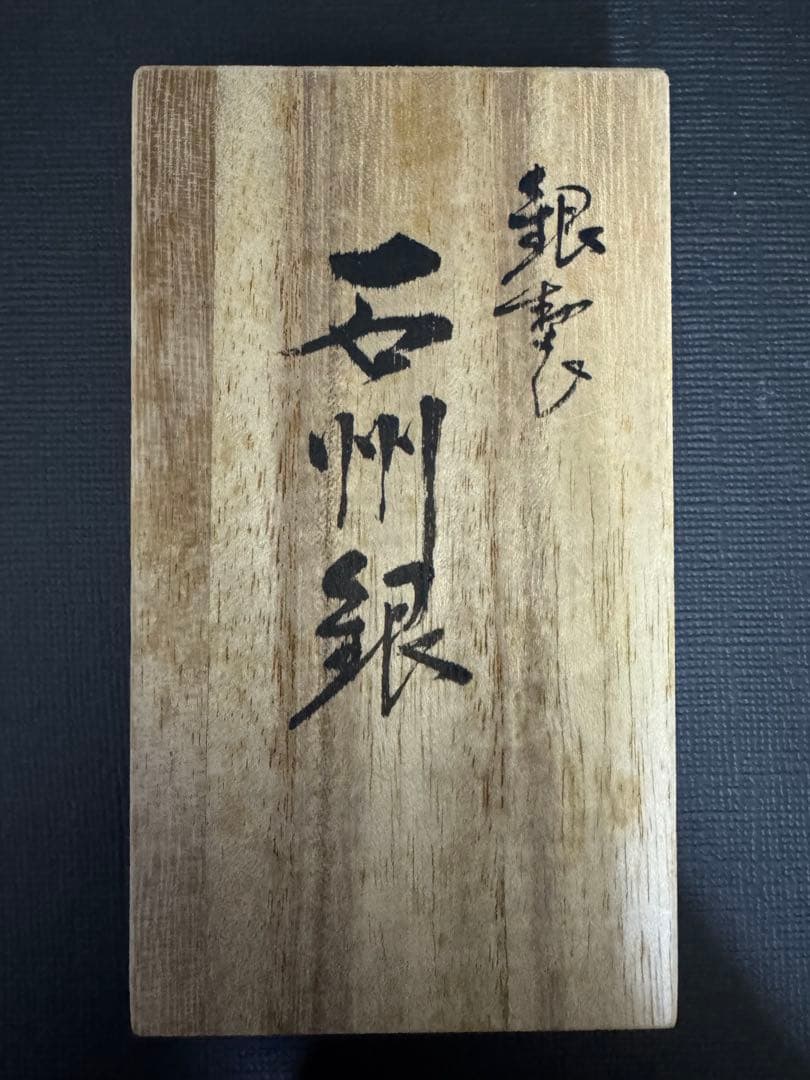 銀製
石州銀